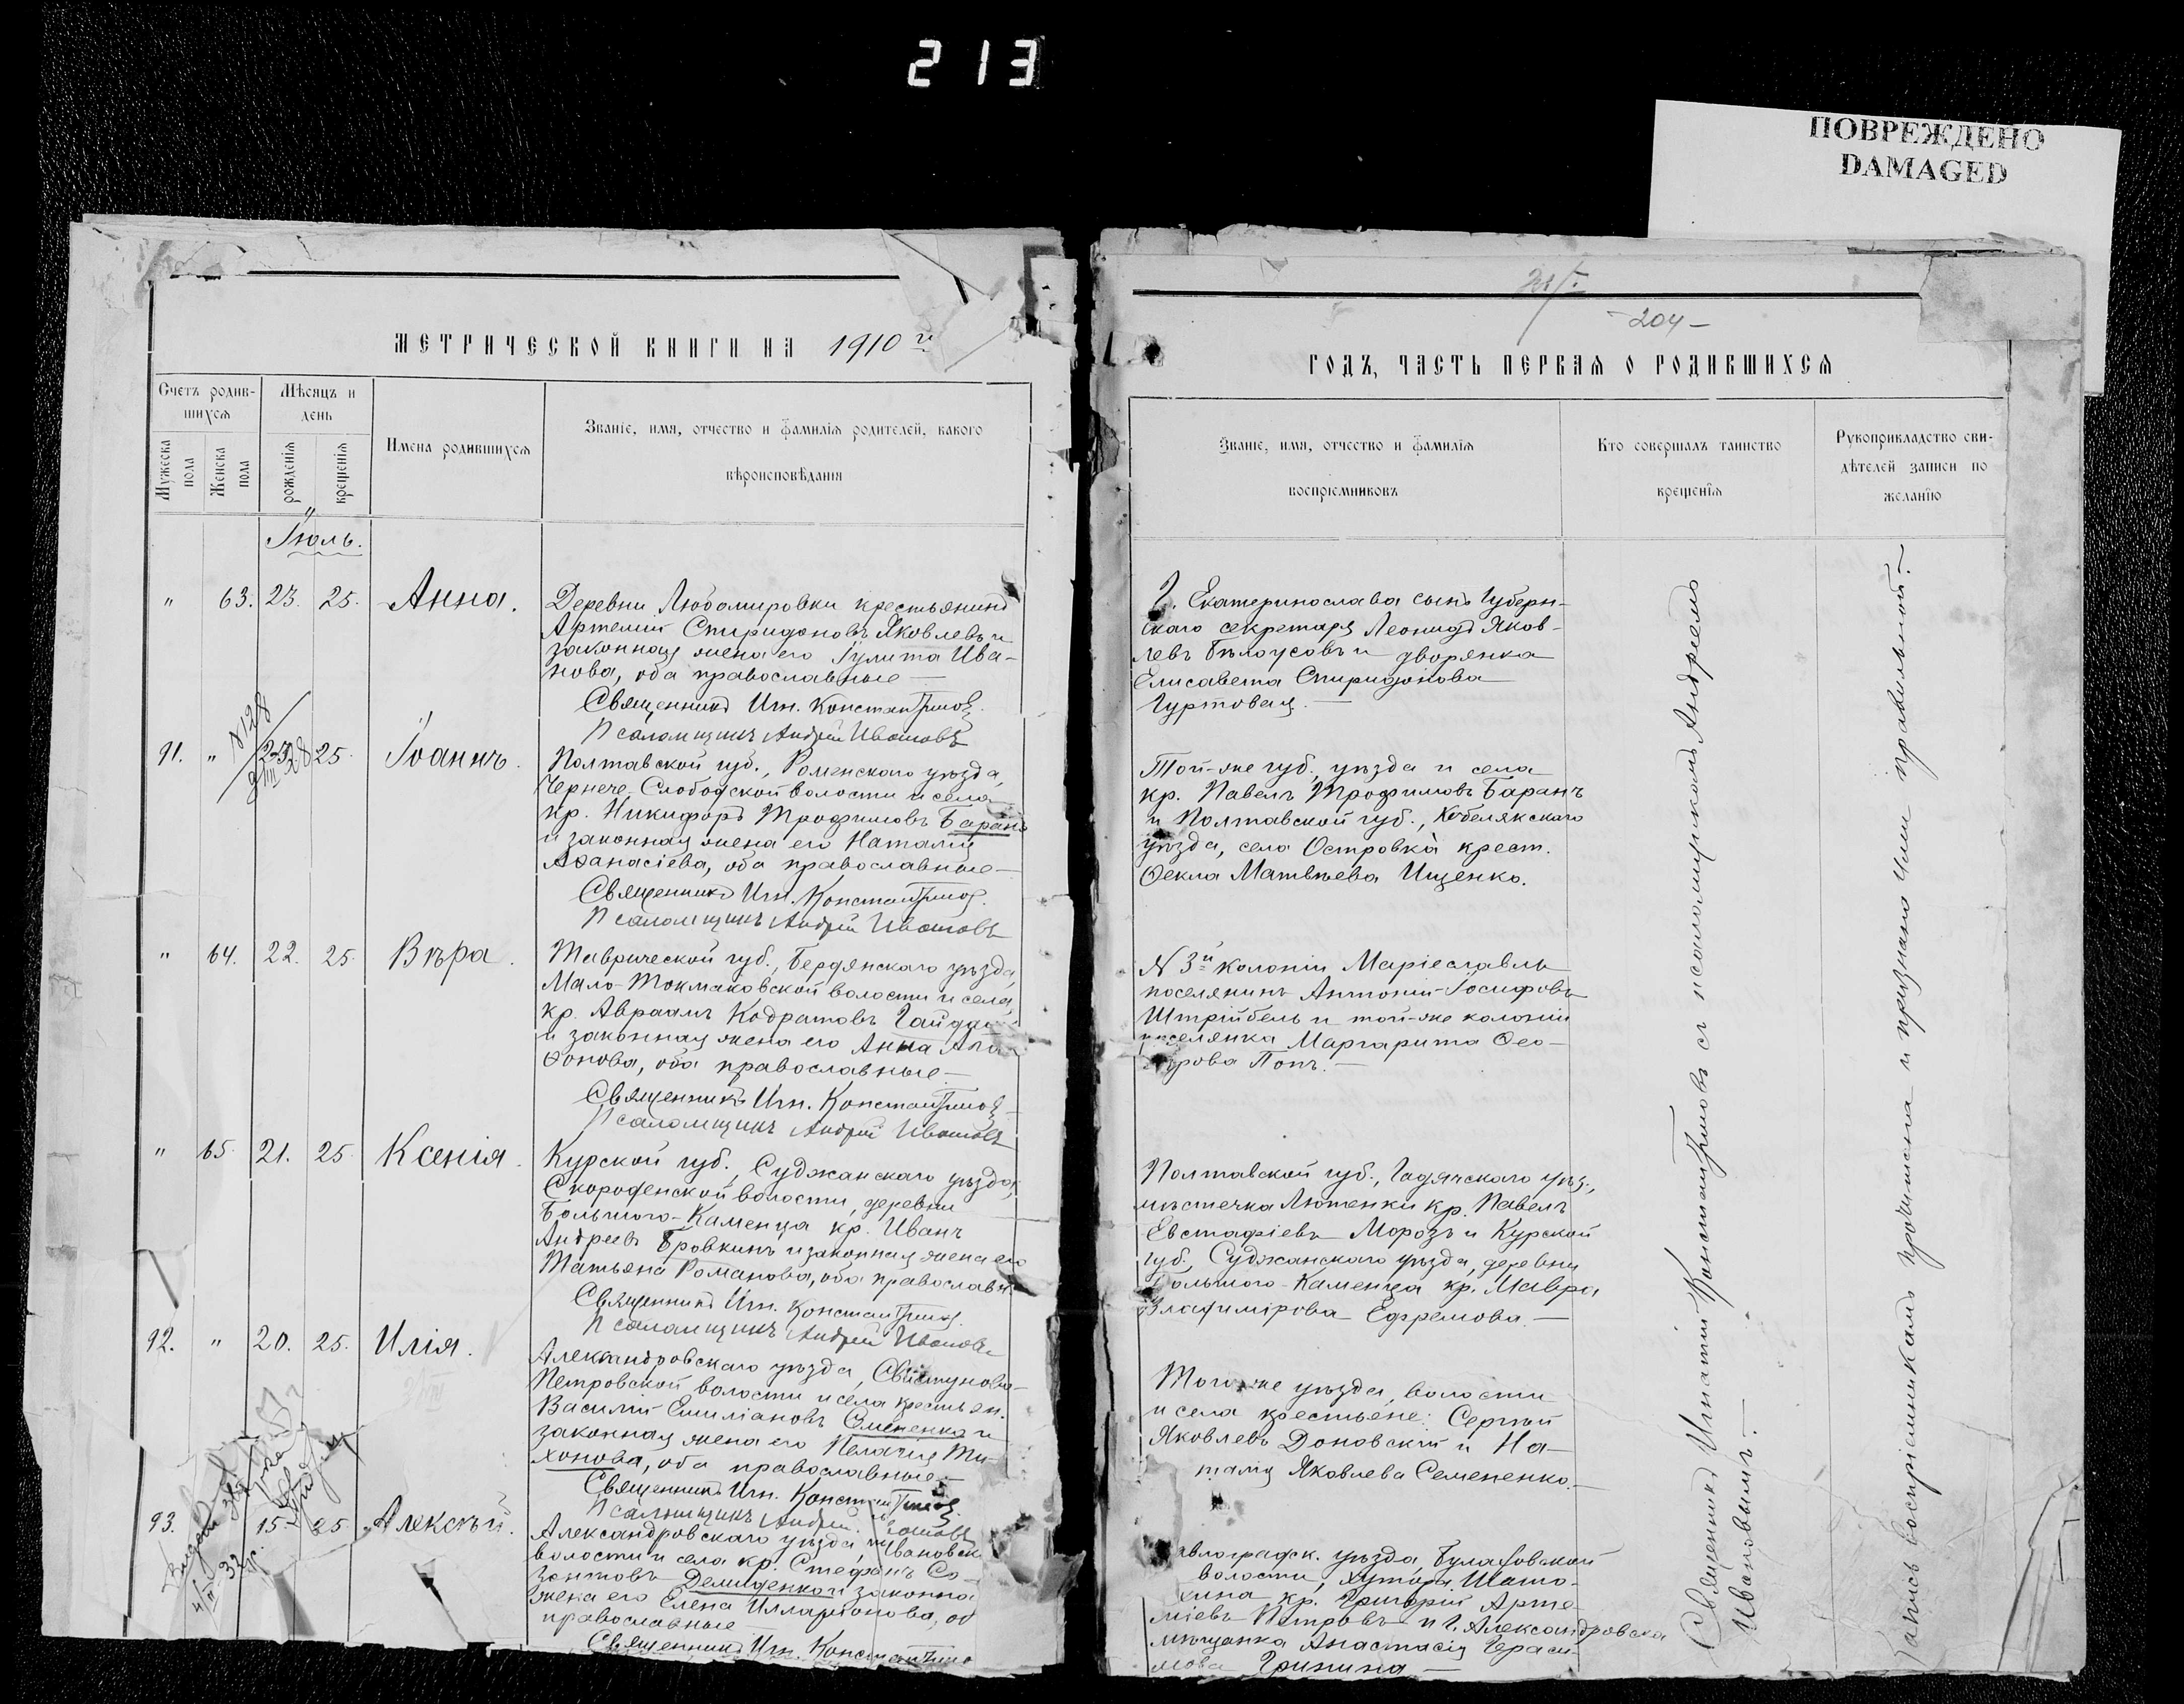 213
ПОВРЕЖДЕНО
DAMAGED
МЕТРИЧЕСКОЙ КНИГИ НА 1910 г.
Счетъ родив-
шихся
Мѣсяцъ и
день
Мужеска
пола
Женска
пола
рожденія
крещенія
Имена родившихся
Званіе, имя, отчество и фамилія родителей, какого
вѣроисповѣданія
Іюль.
" 63. 23. 25. Анна.
Деревни Любомировки крестьянинъ
Артемій Спиридоновъ Яковлевъ и
законная жена его Іулита Ива-
нова, оба православные —
Священникъ Игн. Константиновъ
Псаломщикъ Андрей Ивановъ
91. " 25. Іоаннъ.
Полтавской губ., Роменскаго уѣзда,
Чернече-Слободской волости и села
кр. Никифоръ Трофимовъ Баранъ
и законная жена его Наталія
Аѳанасіева, оба православные —
Священникъ Игн. Константиновъ
Псаломщикъ Андрей Ивановъ
" 64. 22. 25. Вѣра.
Таврической губ., Бердянскаго уѣзда,
Мало-Токмаковской волости и села
кр. Авраамъ Кодратовъ
и законная жена его Анна Ага-
ѳонова, оба православные —
Священникъ Игн. Константиновъ
Псаломщикъ Андрей Ивановъ
" 65. 21. 25. Ксенія.
Курской губ., Суджанскаго уѣзда,
Скороденской волости, деревни
Большого-Каменца кр. Иванъ
Андреевъ Бровкинъ и законная жена его
Татьяна Романова, оба православн.
Священникъ Игн. Константиновъ
Псаломщикъ Андрей Ивановъ
92. " 20. 25. Илія.
Александровскаго уѣзда, Свистуново-
Петровской волости и села крестьян.
Василій Емиліановъ Семененко и
законная жена его Пелагія Ти-
хонова, оба православные —
Священникъ Игн. Константиновъ
Псаломщикъ Андрей Ивановъ
93. 15. 25. Алексѣй.
Александровскаго уѣзда, Ивановск.
волости и села кр. Стефанъ Со-
зонтовъ Демиденко и законная
жена его Елена Илларіонова, об
православные
Священникъ Игн. Константино
204 —
ГОДЪ, ЧАСТЬ ПЕРВАЯ О РОДИВШИХСЯ
Званіе, имя, отчество и фамилія
воспріемниковъ
Кто совершалъ таинство
крещенія
Рукоприкладство сви-
дѣтелей записи по
желанію
Г. Екатеринослава сынъ Губерн-
скаго секретаря Леонидъ Яков-
левъ Бѣлоусовъ и дворянка
Елисавета Спиридонова
Гуртовая. —
Той-же губ., уѣзда и села
кр. Павелъ Трофимовъ Баранъ
и Полтавской губ., Кобелякскаго
уѣзда, села Островка крест.
Ѳекла Матвѣева Ищенко.
N 3й колоніи Маріеславль
поселянинъ Антоній Іосифовъ
Штрибель и той-же колоніи
поселянка Маргарита Ѳео-
дорова Попъ. —
Полтавской губ., Гадячскаго уѣз.,
мѣстечка Лютенки кр. Павелъ
Евстафіевъ Морозъ и Курской
губ., Суджанскаго уѣзда, деревни
Большого-Каменца кр. Мавра
Владимірова Ефремова. —
Того-же уѣзда, волости
и села крестьяне: Сергій
Яковлевъ Доновскій и На-
талія Яковлева Семененко. —
авлоградск. уѣзда, Булаховской
волости, хутора Шато-
хина кр. Григорій Арте-
міевъ Петровъ и г. Александровска
мѣщанка Анастасія Гераси-
мова Гринина —
Священникъ Игнатій Константиновъ съ псаломщикомъ Андреемъ
Ивановымъ. —
Запись воспріемникамъ прочитана и признана ими правильной. —